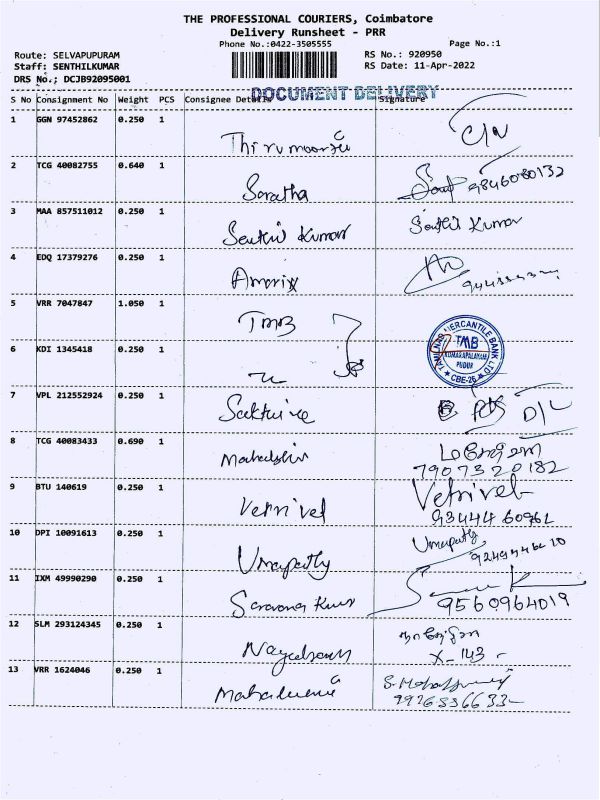 THE PROFESSIONAL COURIERS, Coimbatore
Delivery Runsheet - PRR
Phone No.:0422-3505555 Page No.:1
Route: SELVAPUPURAM RS No.: 920950
Staff: SENTHILKUMAR RS Date: 11-Apr-2022
DRS No.; DCJB92095001
DOCUMENT DELIVERY
S No Consignment No Weight PCS Consignee Details Signature
1 GGN 97452862 0.250 1 Thirumoorthi
2 TCG 40082755 0.640 1 Saratha 9846080132
3 MAA 857511012 0.250 1 Senthil Kumar Senthil Kumar
4 EDQ 17379276 0.250 1
5 VRR 7047847 1.050 1 TMB
TAMILNAD MERCANTILE BANK LTD
TMB
KUMARAPALAYAM
PUDUR
CBE-26
6 KDI 1345418 0.250 1
7 VPL 212552924 0.250 1 D/L
8 TCG 40083433 0.690 1
7907320182
9 BTU 140619 0.250 1 Vetrivel Vetrivel
93444 60962
10 DPI 10091613 0.250 1 Umapathy Umapathy
11 IXM 49990290 0.250 1 Saravana Kumar
9560964019
12 SLM 293124345 0.250 1
X-143
13 VRR 1624046 0.250 1